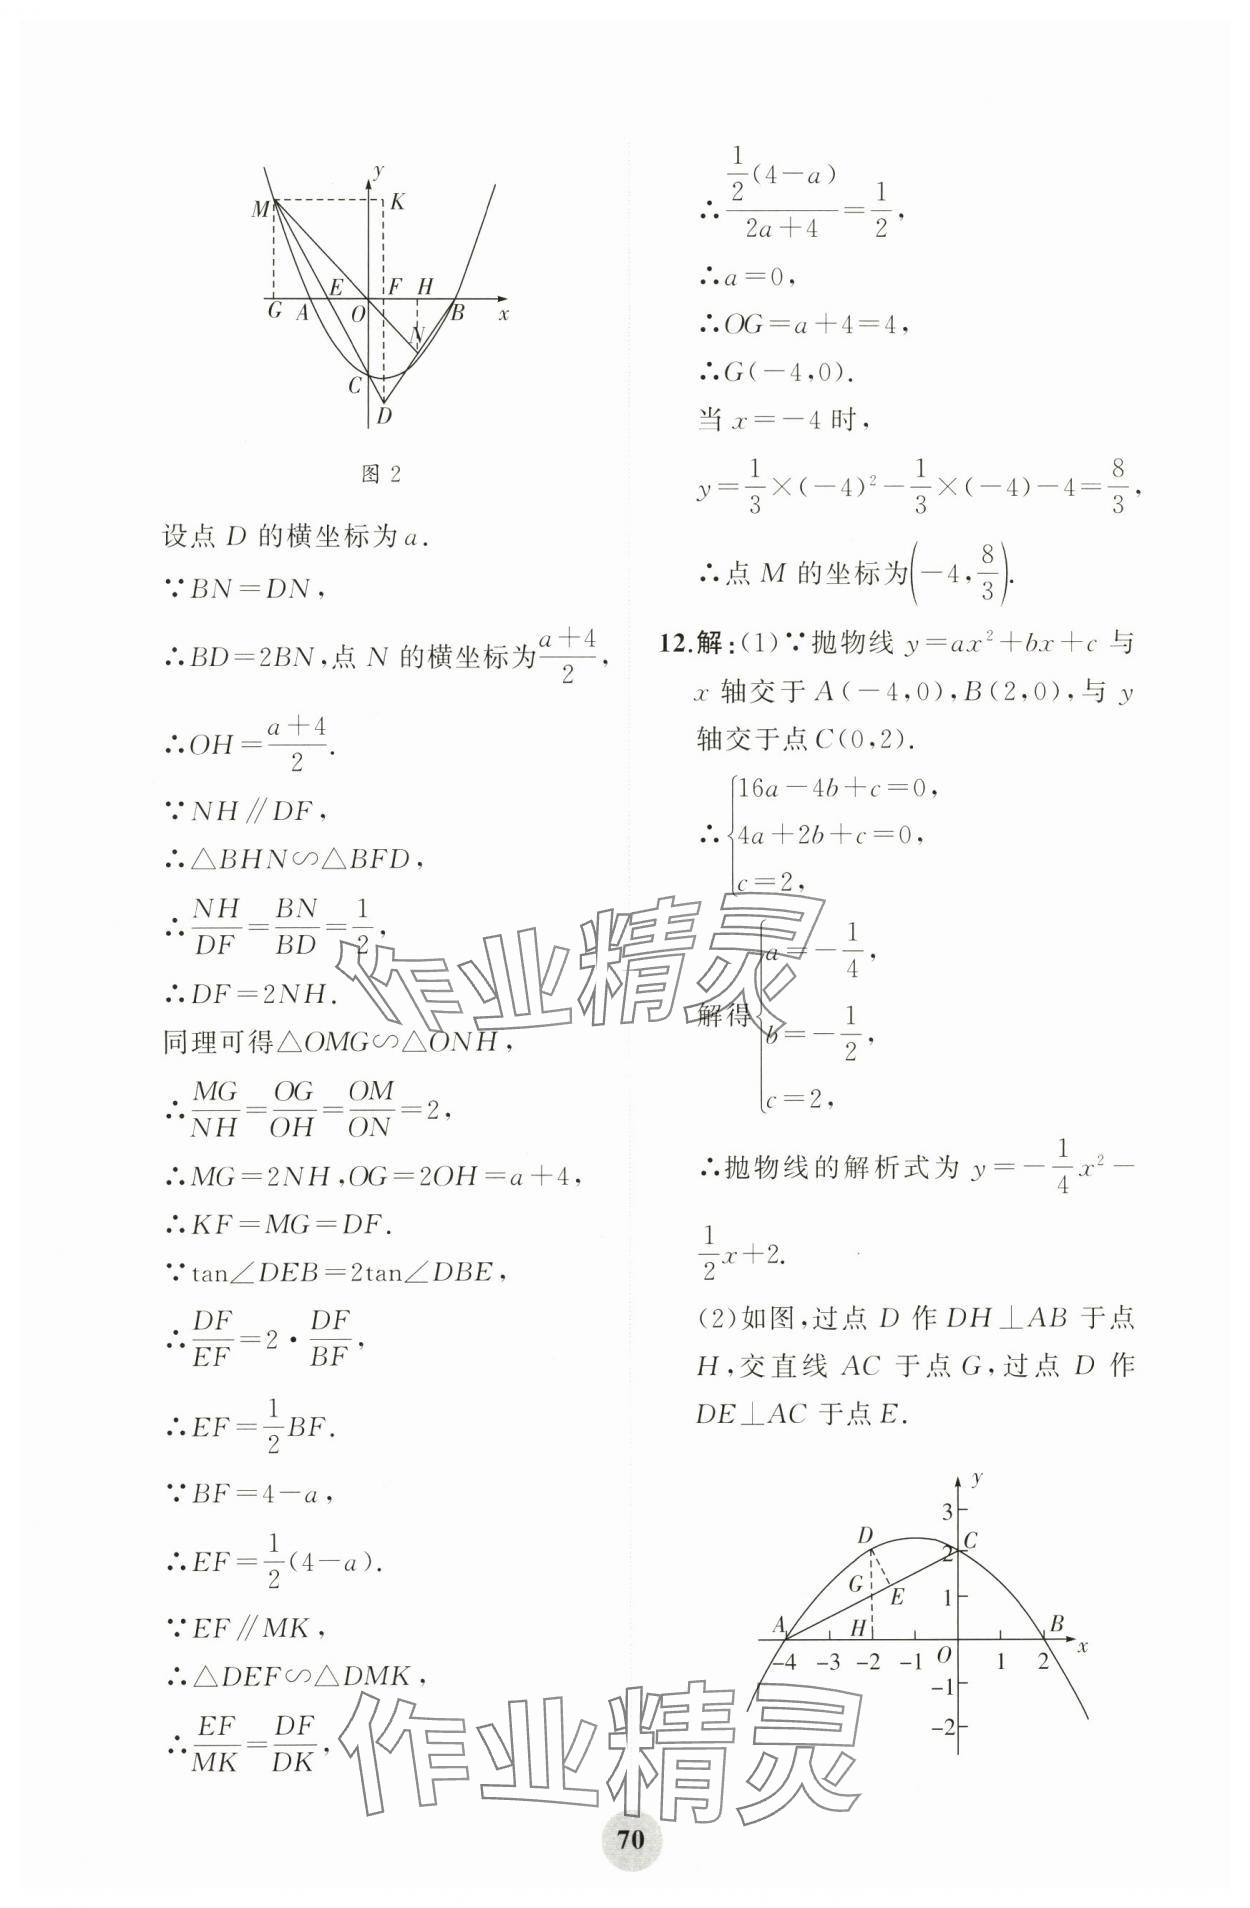 y
M
K
G
A
E
O
F
H
B
x
N
C
D
图 2
设点 D 的横坐标为 a.
∵BN=DN,
∴BD=2BN,点 N 的横坐标为\frac{a+4}{2},
∴OH=\frac{a+4}{2}.
∵NH∥DF,
∴△BHN∽△BFD,
∴\frac{NH}{DF}=\frac{BN}{BD}=\frac{1}{2},
∴DF=2NH.
同理可得△OMG∽△ONH,
∴\frac{MG}{NH}=\frac{OG}{OH}=\frac{OM}{ON}=2,
∴MG=2NH,OG=2OH=a+4,
∴KF=MG=DF.
∵tan∠DEB=2tan∠DBE,
∴\frac{DF}{EF}=2·\frac{DF}{BF},
∴EF=\frac{1}{2}BF.
∵BF=4-a,
∴EF=\frac{1}{2}(4-a).
∵EF∥MK,
∴△DEF∽△DMK,
∴\frac{EF}{MK}=\frac{DF}{DK},
∴\frac{\frac{1}{2}(4-a)}{2a+4}=\frac{1}{2},
∴a=0,
∴OG=a+4=4,
∴G(-4,0).
当 x=-4 时,
y=\frac{1}{3}×(-4)²-\frac{1}{3}×(-4)-4=\frac{8}{3},
∴点 M 的坐标为(-4,\frac{8}{3}).
12.解:(1)∵抛物线 y=ax²+bx+c 与
x 轴交于 A(-4,0),B(2,0),与 y
轴交于点 C(0,2).
∴{16a-4b+c=0,
4a+2b+c=0,
c=2,
解得{a=-\frac{1}{4},
b=-\frac{1}{2},
c=2,
∴抛物线的解析式为 y=-\frac{1}{4}x²-
\frac{1}{2}x+2.
(2)如图,过点 D 作 DH⊥AB 于点
H,交直线 AC 于点 G,过点 D 作
DE⊥AC 于点 E.
y
3
D
2
C
G
E
1
A
H
B
-4 -3 -2 -1 O 1 2 x
-1
-2
作业精灵
作业精灵
70